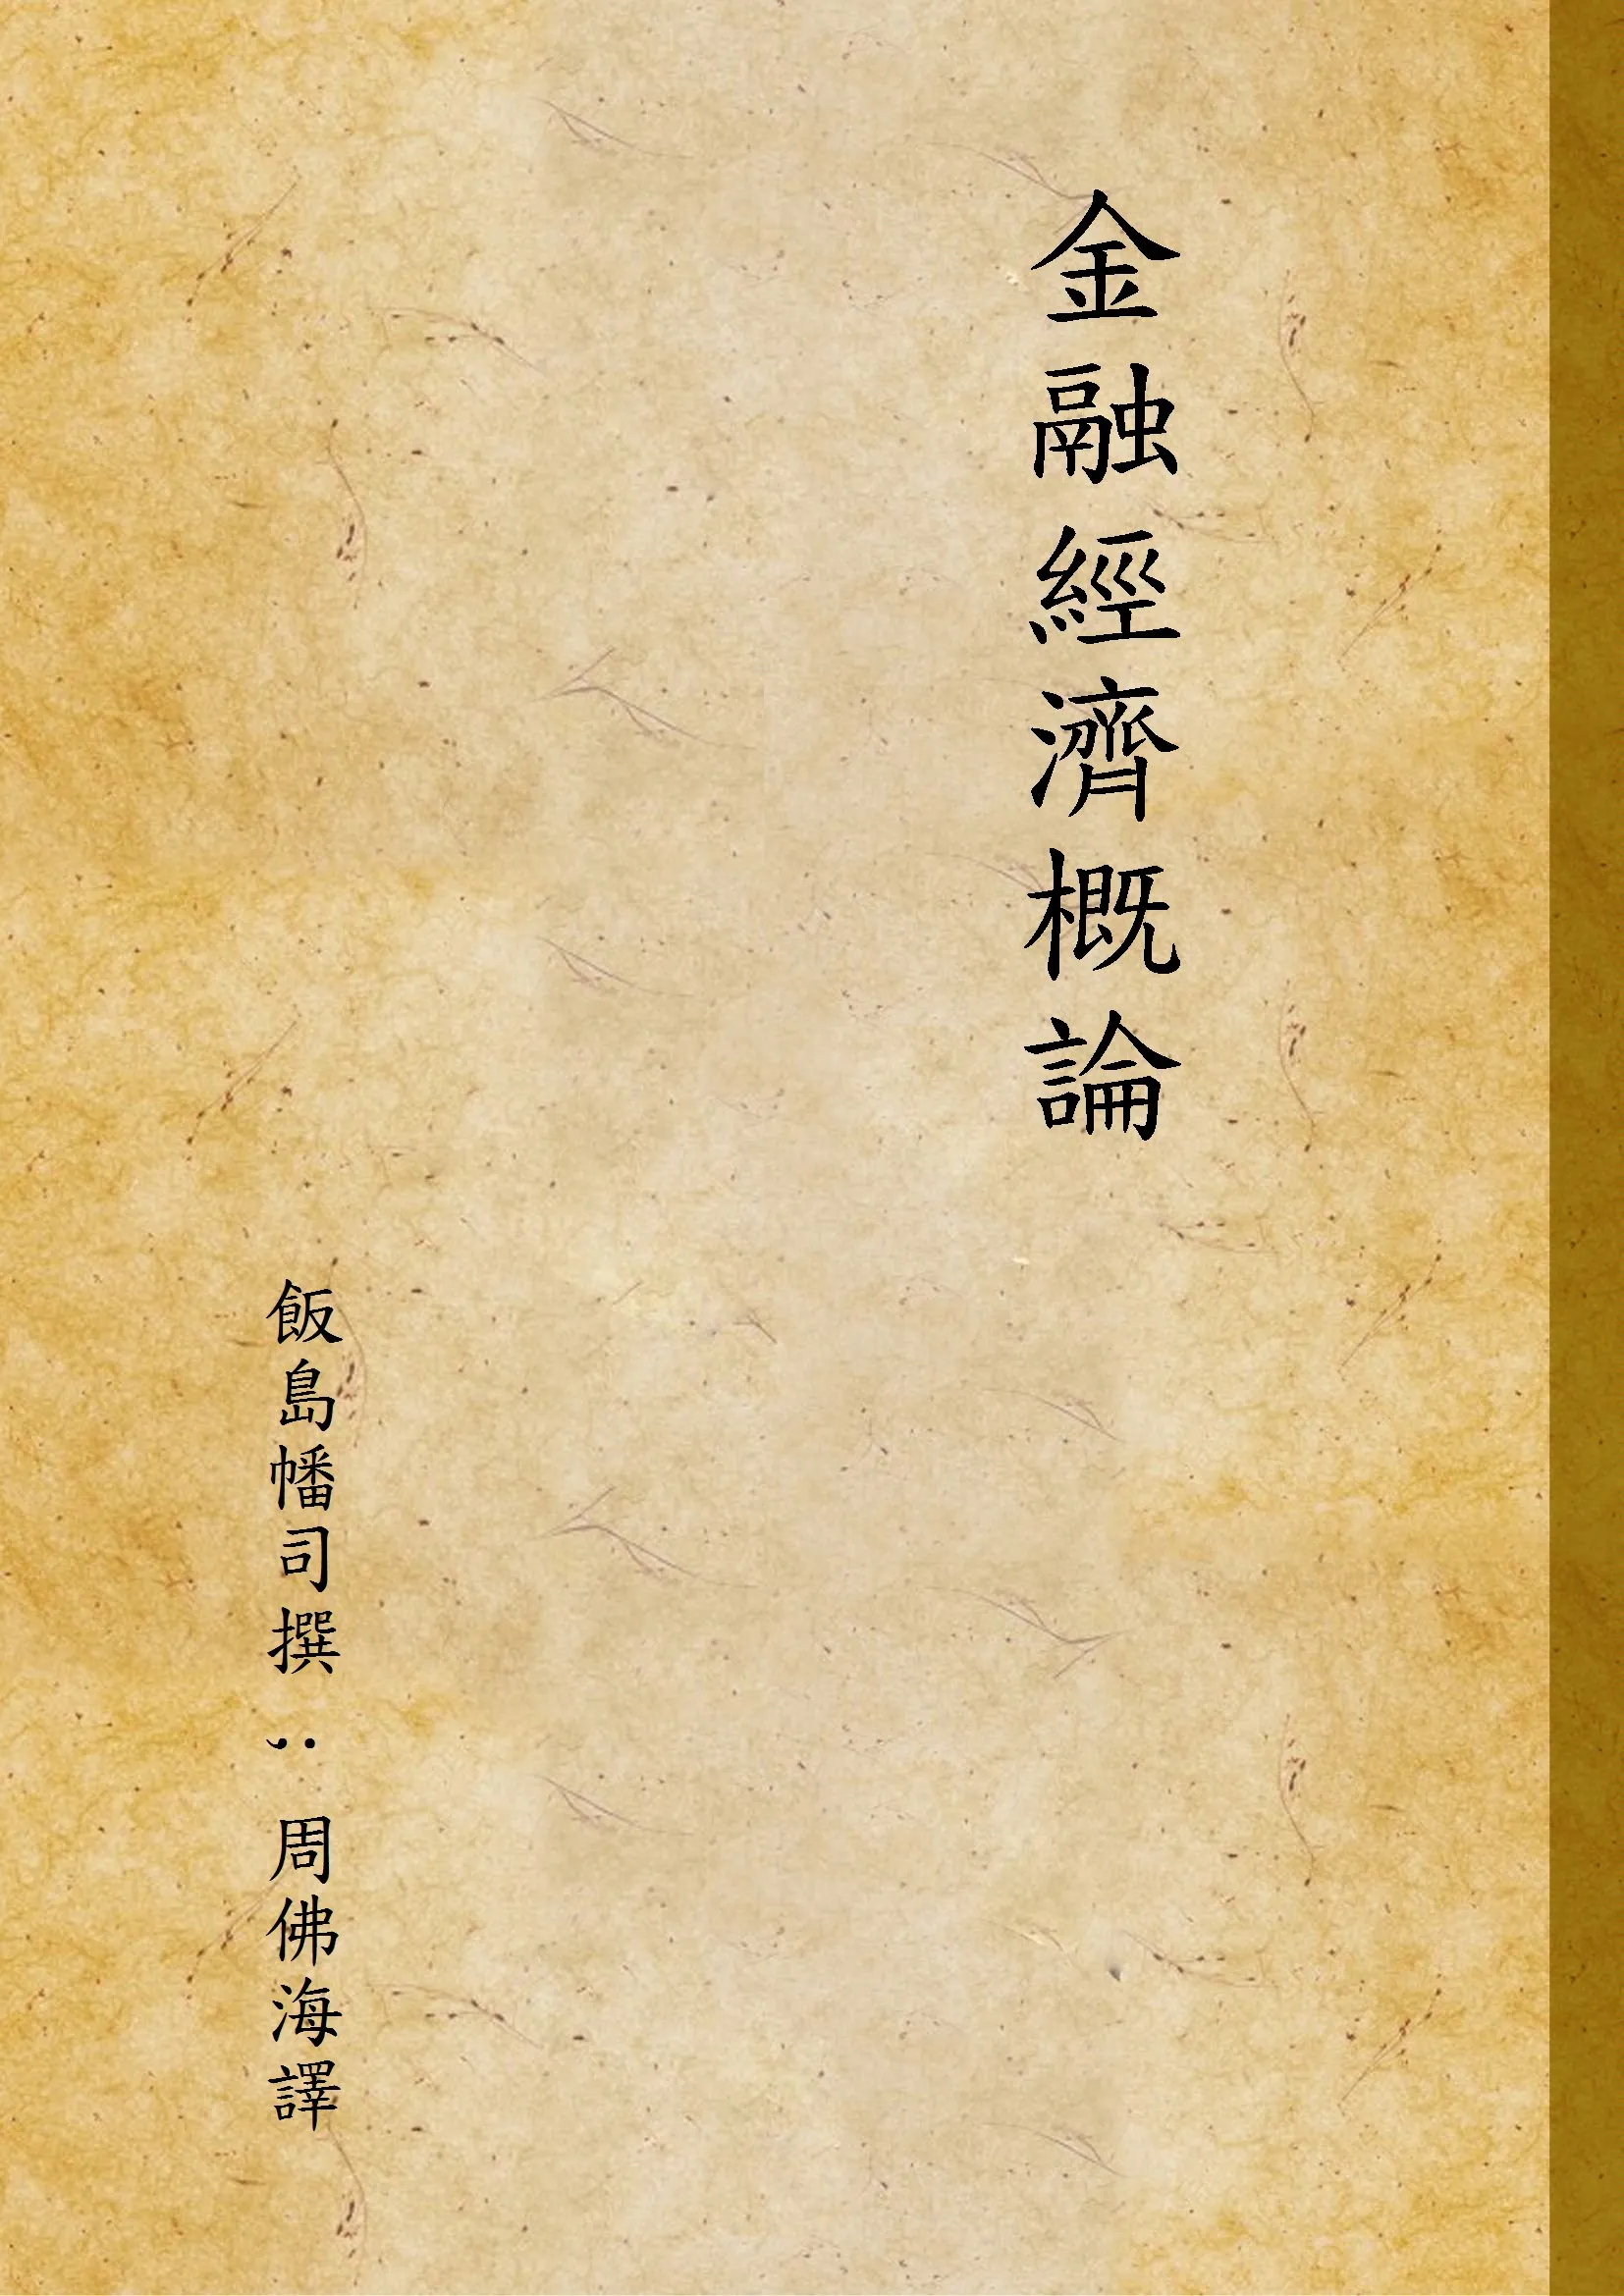 金融經濟概論
飯島幡司撰；周佛海譯